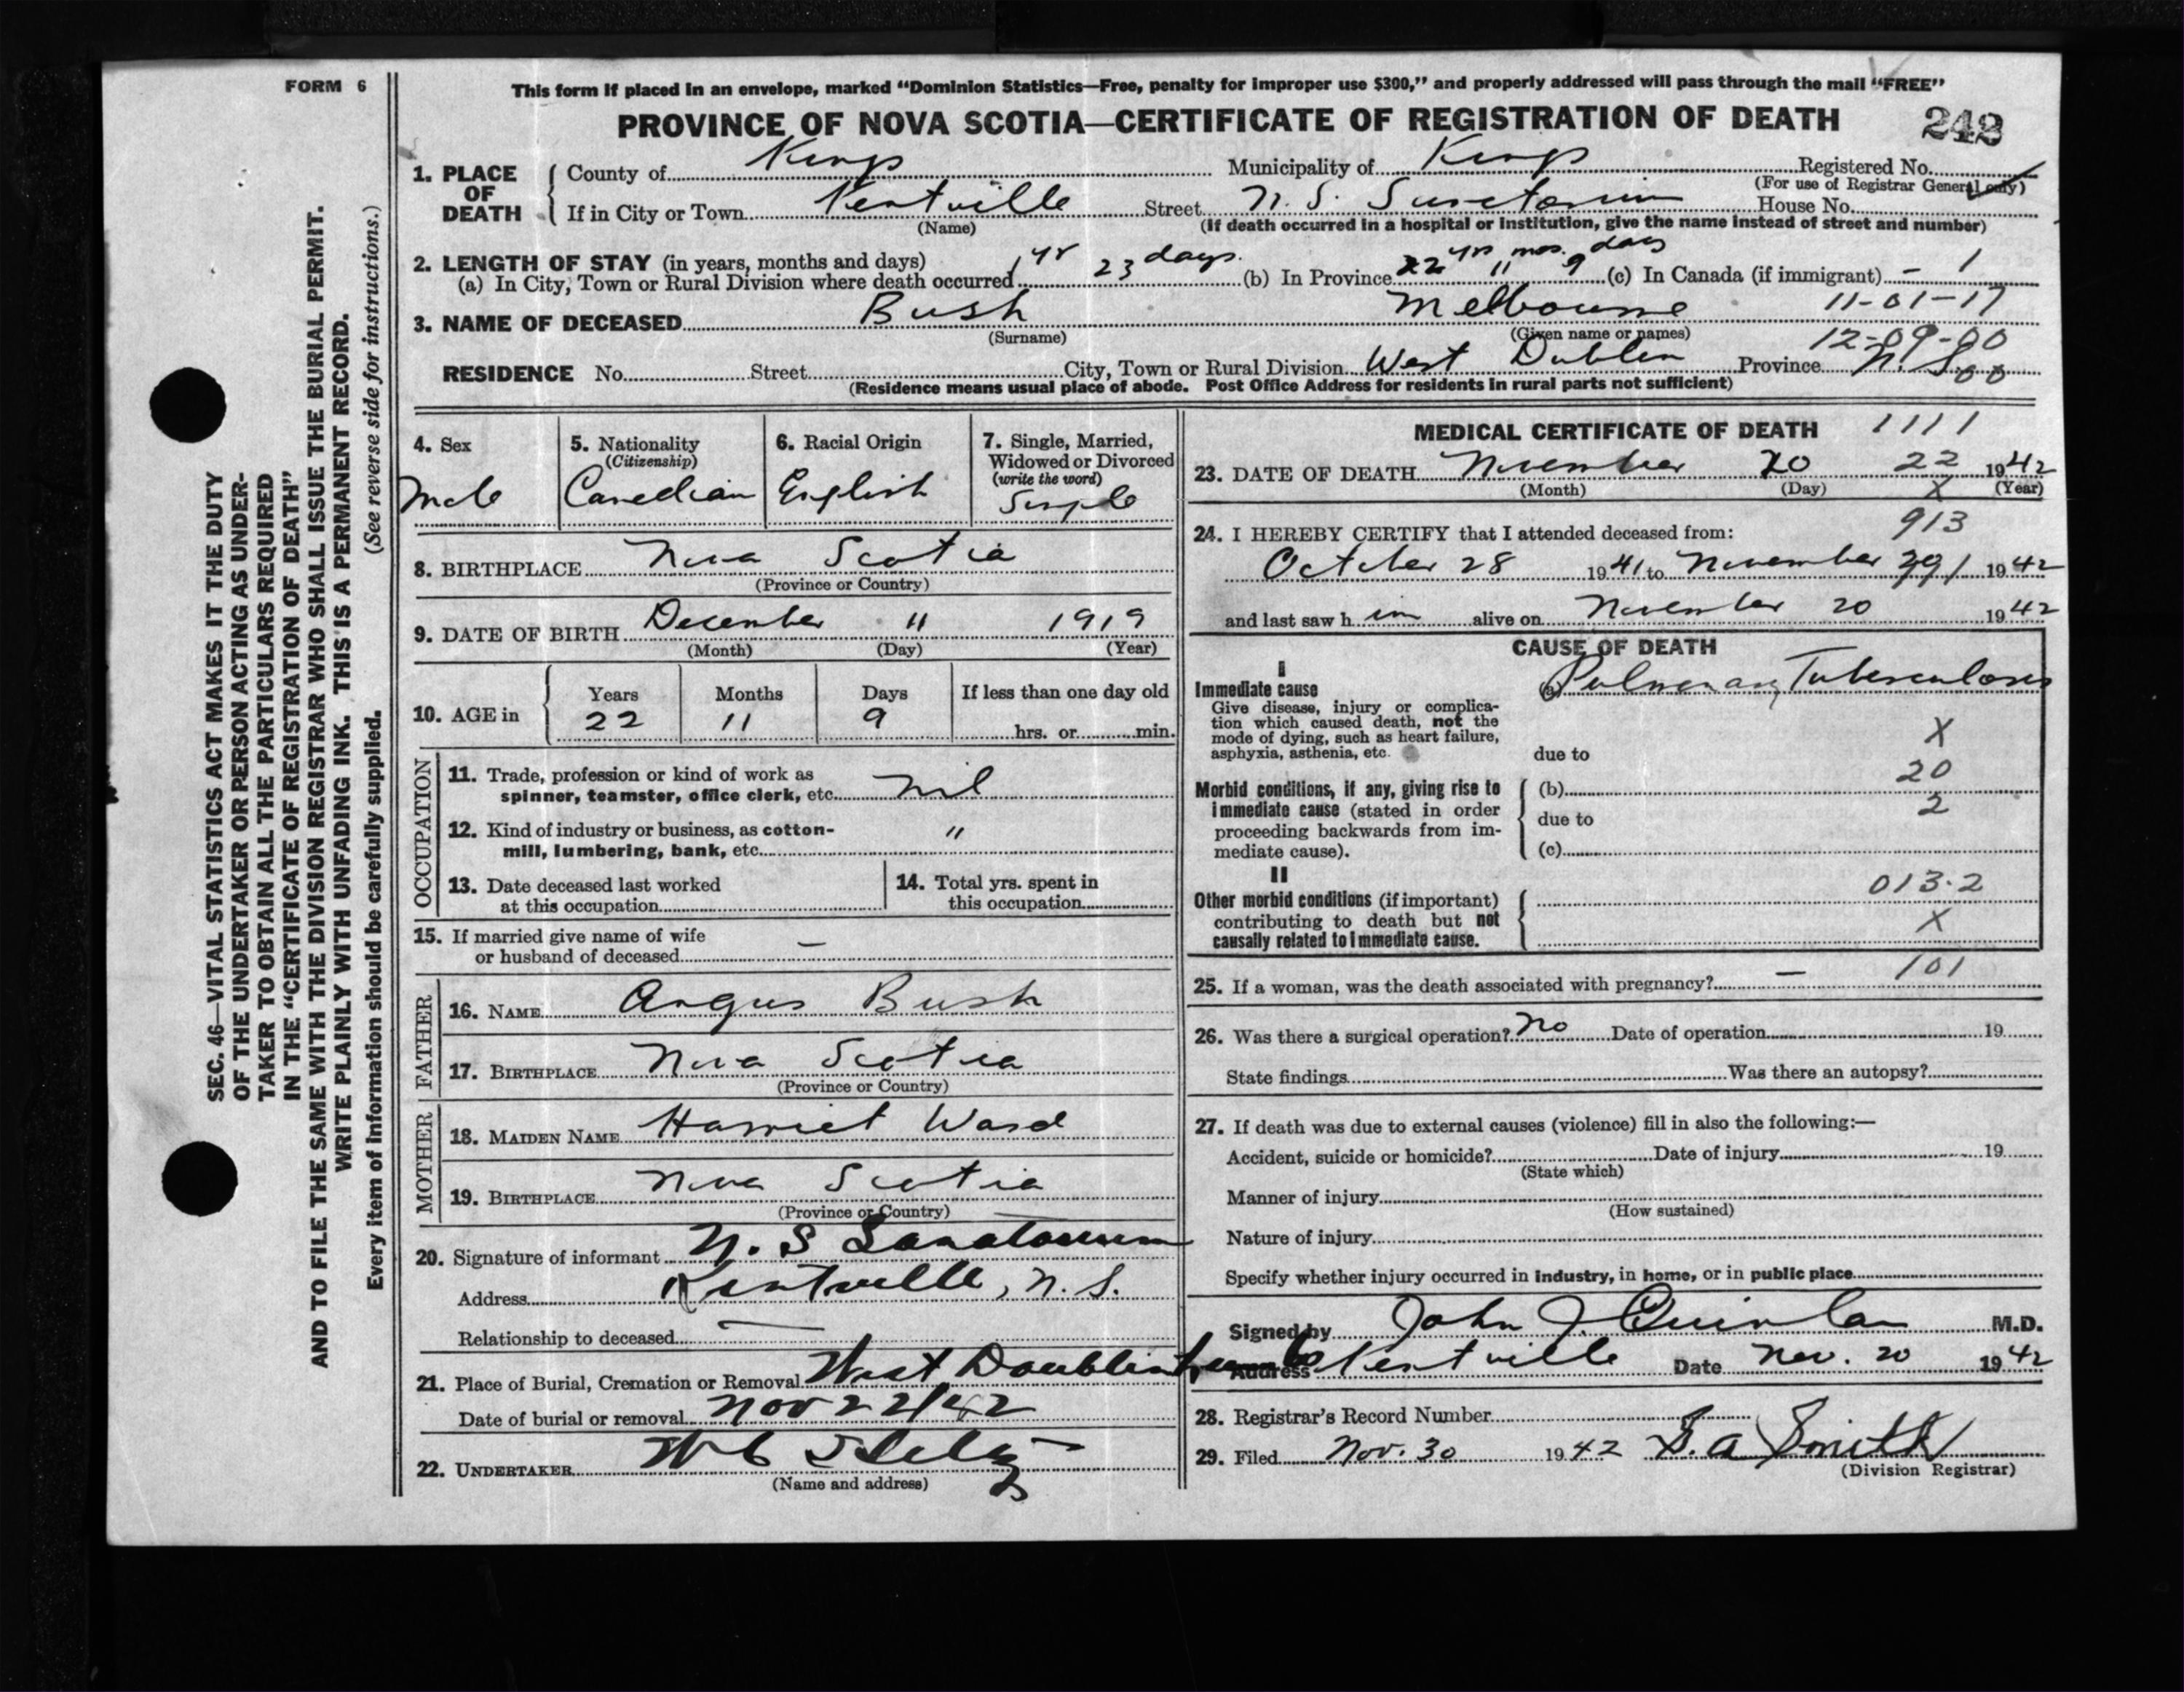 FORM 6
This form if placed in an envelope, marked "Dominion Statistics—Free, penalty for improper use $300," and properly addressed will pass through the mail "FREE"
PROVINCE OF NOVA SCOTIA—CERTIFICATE OF REGISTRATION OF DEATH
242
SEC. 46—VITAL STATISTICS ACT MAKES IT THE DUTY
OF THE UNDERTAKER OR PERSON ACTING AS UNDER-
TAKER TO OBTAIN ALL THE PARTICULARS REQUIRED
IN THE "CERTIFICATE OF REGISTRATION OF DEATH"
AND TO FILE THE SAME WITH THE DIVISION REGISTRAR WHO SHALL ISSUE THE BURIAL PERMIT.
WRITE PLAINLY WITH UNFADING INK. THIS IS A PERMANENT RECORD.
Every item of information should be carefully supplied. (See reverse side for instructions.)
1. PLACE OF DEATH
County of Kings Municipality of Kings Registered No.
(For use of Registrar General only)
If in City or Town Kentville Street N. S. Sanatorium House No.
(Name) (If death occurred in a hospital or institution, give the name instead of street and number)
2. LENGTH OF STAY (in years, months and days)
(a) In City, Town or Rural Division where death occurred 1 yr 23 days. (b) In Province 22 yrs 11 mos. 9 days (c) In Canada (if immigrant) - 1
11-01-17
3. NAME OF DECEASED Bush Melbourne
(Surname) (Given name or names)
12-09-00
RESIDENCE No. Street City, Town or Rural Division West Dublin Province N. S. 00
(Residence means usual place of abode. Post Office Address for residents in rural parts not sufficient)
4. Sex
Male
5. Nationality
(Citizenship)
Canadian
6. Racial Origin
English
7. Single, Married,
Widowed or Divorced
(write the word)
Single
8. BIRTHPLACE Nova Scotia
(Province or Country)
9. DATE OF BIRTH December 11 1919
(Month) (Day) (Year)
10. AGE in
Years Months Days If less than one day old
22 11 9 hrs. or min.
OCCUPATION
11. Trade, profession or kind of work as
spinner, teamster, office clerk, etc. nil
12. Kind of industry or business, as cotton-
mill, lumbering, bank, etc. "
13. Date deceased last worked
at this occupation
14. Total yrs. spent in
this occupation
15. If married give name of wife
or husband of deceased —
FATHER
16. NAME Angus Bush
17. BIRTHPLACE Nova Scotia
(Province or Country)
MOTHER
18. MAIDEN NAME Harriet Ward
19. BIRTHPLACE Nova Scotia
(Province or Country)
20. Signature of informant N. S Sanatorium
Address Kentville, N. S.
Relationship to deceased —
21. Place of Burial, Cremation or Removal West Doublin
Date of burial or removal Nov 22/42
22. UNDERTAKER
(Name and address)
MEDICAL CERTIFICATE OF DEATH 1111
23. DATE OF DEATH November 20 22 1942
(Month) (Day) X (Year)
24. I HEREBY CERTIFY that I attended deceased from: 913
October 28 1941 to November 1942
and last saw h im alive on November 20 1942
CAUSE OF DEATH
I
Immediate cause
Give disease, injury or complica-
tion which caused death, not the
mode of dying, such as heart failure,
asphyxia, asthenia, etc.
(a) Pulmonary Tuberculosis
X
due to
20
Morbid conditions, if any, giving rise to
immediate cause (stated in order
proceeding backwards from im-
mediate cause).
(b)
2
due to
(c)
II
Other morbid conditions (if important)
contributing to death but not
causally related to immediate cause.
013.2
X
25. If a woman, was the death associated with pregnancy? — 101
26. Was there a surgical operation? No Date of operation 19
State findings Was there an autopsy?
27. If death was due to external causes (violence) fill in also the following:—
Accident, suicide or homicide? Date of injury 19
(State which)
Manner of injury
(How sustained)
Nature of injury
Specify whether injury occurred in industry, in home, or in public place
Signed by John J. Quinlan M.D.
Address Kentville Date Nov. 20 1942
28. Registrar's Record Number
29. Filed Nov. 30 1942 S. A Smith
(Division Registrar)